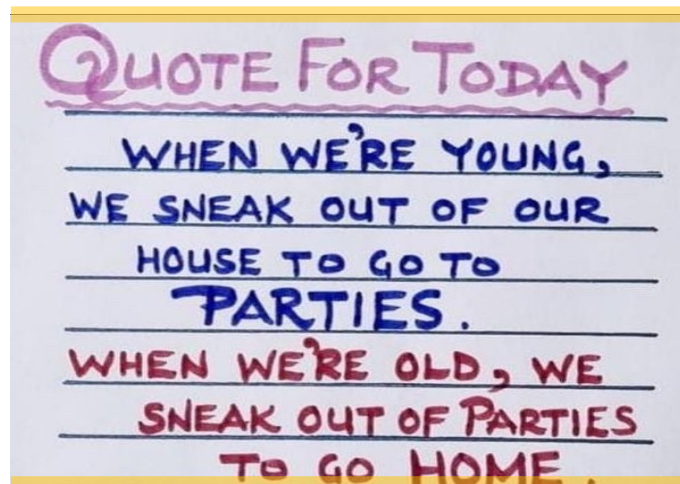 QUOTE FOR TODAY
WHEN WE'RE YOUNG,
WE SNEAK OUT OF OUR
HOUSE TO GO TO
PARTIES.
WHEN WE'RE OLD, WE
SNEAK OUT OF PARTIES
TO GO HOME.